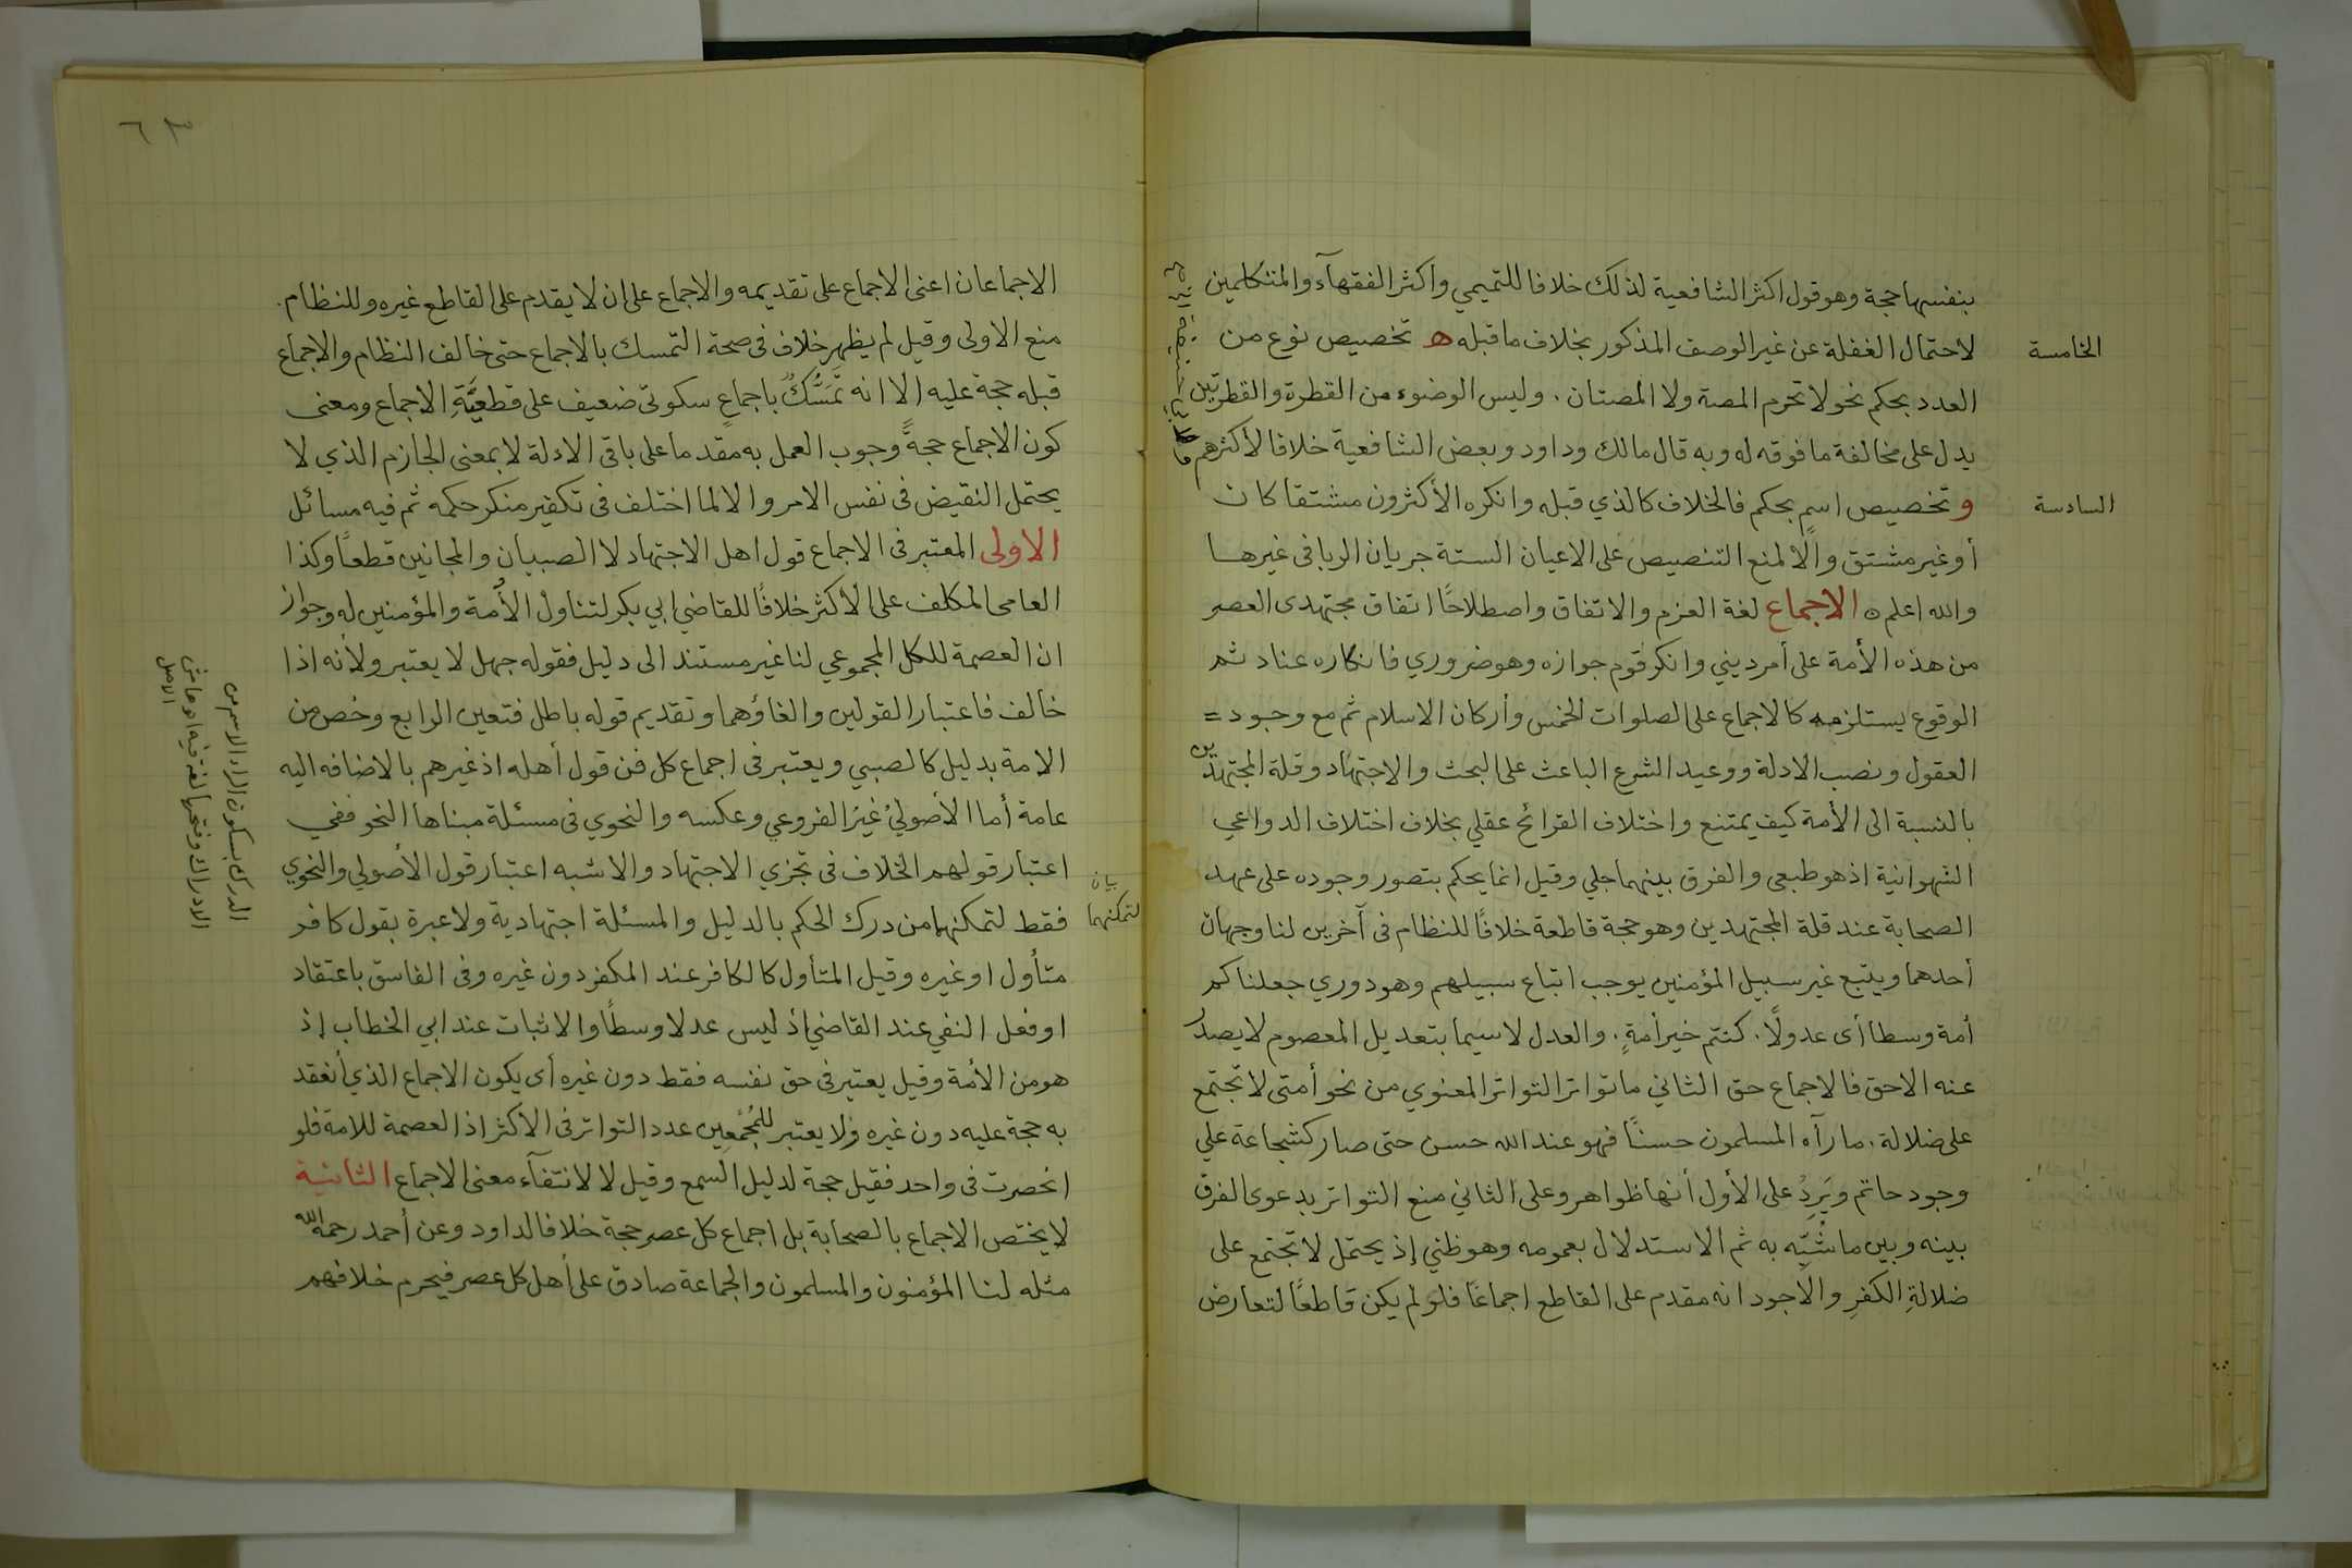 بنفسها حجة وهو قول اكثر الشافعية لذلك خلافا للتميمي واكثر الفقهآء والمتكلمين
الخامسة
لاحتمال الغفلة عن غير الوصف المذكور بخلاف ما قبله ه تخصيص نوع من
العدد بحكم نحو لا تحرم المصة ولا المصتان . وليس الوضوء من القطرة والقطرتين
يدل على مخالفة ما فوقه له وبه قال مالك وداود وبعض الشافعية خلافا لأكثرهم
السادسة
و تخصيص اسمٍ بحكم فالخلاف كالذي قبله وانكره الأكثرون مشتقا كان
أو غير مشتق والا لمنع التنصيص على الاعيان الستة جريان الربا فى غيرها
والله اعلم ه الاجماع لغة العزم والاتفاق واصطلاحًا اتفاق مجتهدى العصر
من هذه الأمة على أمر ديني وانكر قوم جوازه وهو ضروري فانكاره عناد ثم
الوقوع يستلزمه كالاجماع على الصلوات الخمس وأركان الاسلام ثم مع وجود =
العقول ونصب الادلة ووعيد الشرع الباعث على البحث والاجتهاد وقلة المجتهدين
بالنسبة الى الأمة كيف يمتنع واختلاف القرائح عقلي بخلاف اختلاف الدواعي
الشهوانية اذ هو طبعى والفرق بينهما جلي وقيل انما يحكم بتصور وجوده على عهد
الصحابة عند قلة المجتهدين وهو حجة قاطعة خلافًا للنظام فى آخرين لنا وجهان
أحدهما ويتبع غير سبيل المؤمنين يوجب اتباع سبيلهم وهو دوري جعلناكم
أمة وسطا أى عدولًا . كنتم خير أمةٍ . والعدل لا سيما بتعديل المعصوم لا يصدر
عنه الا حق فالاجماع حق الثاني ما تواتر التواتر المعنوي من نحو أمتى لا تجتمع
على ضلالة . ما رآه المسلمون حسنًا فهو عند الله حسن حتى صار كشجاعة علي
وجود حاتم ويَرِدُ على الأول أنها ظواهر وعلى الثاني منع التواتر بدعوى الفرق
بينه وبين ما شُبِّه به ثم الاستدلال بعمومه وهو ظني إذ يحتمل لا تجتمع على
ضلالةِ الكفرِ والأجود انه مقدم على القاطع اجماعًا فلو لم يكن قاطعًا لتعارض
٦٣
الاجماعان اعنى الاجماع على تقديمه والاجماع على ان لا يقدم على القاطع غيره وللنظام .
منع الاولى وقيل لم يظهر خلاف فى صحة التمسك بالاجماع حتى خالف النظام والاجماع
قبله حجة عليه الا انه تَمَسُّكٌ باجماعٍ سكوتى ضعيف على قطعيَّةِ الاجماع ومعنى
كون الاجماع حجةً وجوب العمل به مقدما على باقى الادلة لا بمعنى الجازم الذي لا
يحتمل النقيض فى نفس الامر والا لما اختلف فى تكفير منكر حكمه ثم فيه مسائل
الاولى المعتبر فى الاجماع قول اهل الاجتهاد لا الصبيان والمجانين قطعًا وكذا
العامى المكلف على الأكثر خلافًا للقاضي ابي بكر لتناول الأمة والمؤمنين له وجواز
ان العصمة للكل المجموعي لنا غير مستند الى دليل فقوله جهل لا يعتبر ولأنه اذا
خالف فاعتبار القولين والغاؤهما وتقديم قوله باطل فتعين الرابع وخُص من
الامة بدليل كالصبي ويعتبر فى اجماع كل فن قول أهله اذ غيرهم بالاضافه اليه
عامة أما الأصوليُ غيرُ الفروعي وعكسه والنحوي فى مسئلة مبناها النحو ففي
اعتبار قولهم الخلاف فى تجزي الاجتهاد والاشبه اعتبار قول الأصولي والنحوي
بيان
لتمكنهما
فقط لتمكنهما من درك الحكم بالدليل والمسئلة اجتهادية ولا عبرة بقول كافر
متأول او غيره وقيل المتأول كالكافر عند المكفر دون غيره وفى الفاسق باعتقاد
او فعل النفي عند القاضي إذ ليس عدلا وسطًا والاثبات عند ابي الخطاب إذ
هو من الأمة وقيل يعتبر فى حق نفسه فقط دون غيره أى يكون الاجماع الذي أنعقد
به حجة عليه دون غيره ولا يعتبر للمُجْمِعِين عدد التواتر فى الاكثر اذ العصمة للامة فلو
انحصرت فى واحد فقيل حجة لدليل السمع وقيل لا لانتفآء معنى الاجماع الثانية
لا يختص الاجماع بالصحابة بل اجماع كل عصر حجة خلافا لداود وعن أحمد رحمه الله
مثله لنا المؤمنون والمسلمون والجماعة صادق على أهل كل عصر فيحرم خلافهم
الدرك بسكون الراء الاسم من
الادراك وفتحها لغة فيه اه هامش
الاصل